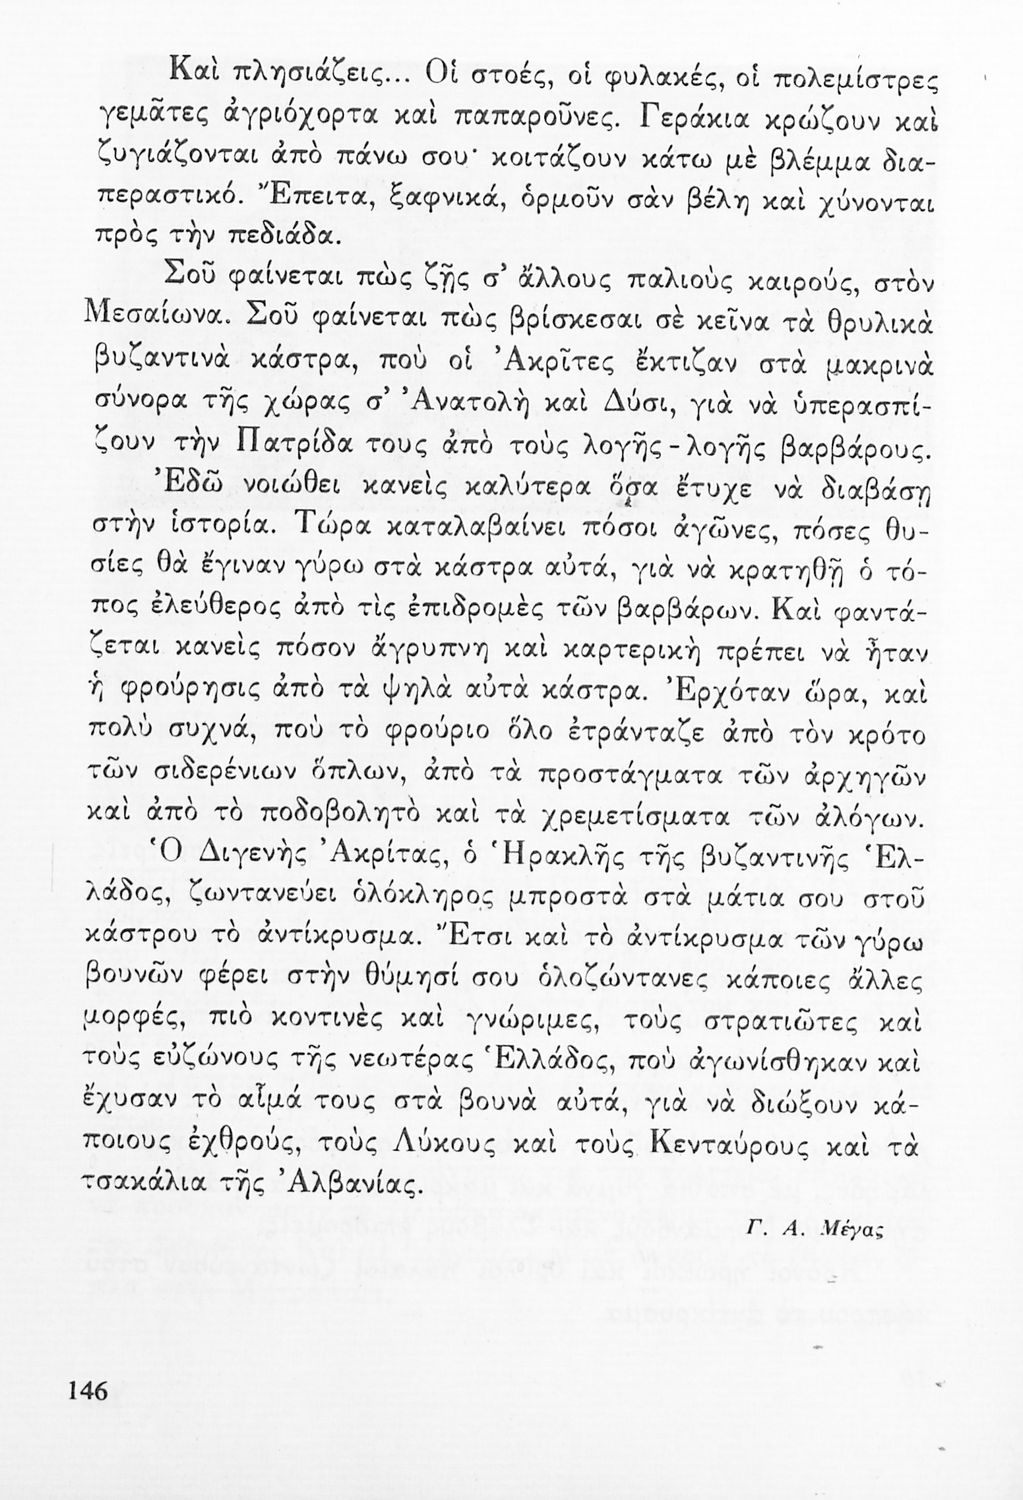 Καὶ πλησιάζεις... Οἱ στοές, οἱ φυλακές, οἱ πολεμίστρες
γεμᾶτες ἀγριόχορτα καὶ παπαροῦνες. Γεράκια κρώζουν καὶ
ζυγιάζονται ἀπὸ πάνω σου· κοιτάζουν κάτω μὲ βλέμμα δια-
περαστικό. Ἔπειτα, ξαφνικά, ὁρμοῦν σὰν βέλη καὶ χύνονται
πρὸς τὴν πεδιάδα.
Σοῦ φαίνεται πὼς ζῇς σ’ ἄλλους παλιοὺς καιρούς, στὸν
Μεσαίωνα. Σοῦ φαίνεται πὼς βρίσκεσαι σὲ κεῖνα τὰ θρυλικὰ
βυζαντινὰ κάστρα, ποὺ οἱ Ἀκρῖτες ἔκτιζαν στὰ μακρινὰ
σύνορα τῆς χώρας σ’ Ἀνατολὴ καὶ Δύσι, γιὰ νὰ ὑπερασπί-
ζουν τὴν Πατρίδα τους ἀπὸ τοὺς λογῆς - λογῆς βαρβάρους.
Ἐδῶ νοιώθει κανεὶς καλύτερα ὅσα ἔτυχε νὰ διαβάσῃ
στὴν ἱστορία. Τώρα καταλαβαίνει πόσοι ἀγῶνες, πόσες θυ-
σίες θὰ ἔγιναν γύρω στὰ κάστρα αὐτά, γιὰ νὰ κρατηθῇ ὁ τό-
πος ἐλεύθερος ἀπὸ τὶς ἐπιδρομὲς τῶν βαρβάρων. Καὶ φαντά-
ζεται κανεὶς πόσον ἄγρυπνη καὶ καρτερικὴ πρέπει νὰ ἦταν
ἡ φρούρησις ἀπὸ τὰ ψηλὰ αὐτὰ κάστρα. Ἐρχόταν ὥρα, καὶ
πολὺ συχνά, ποὺ τὸ φρούριο ὅλο ἐτράνταζε ἀπὸ τὸν κρότο
τῶν σιδερένιων ὅπλων, ἀπὸ τὰ προστάγματα τῶν ἀρχηγῶν
καὶ ἀπὸ τὸ ποδοβολητὸ καὶ τὰ χρεμετίσματα τῶν ἀλόγων.
Ὁ Διγενὴς Ἀκρίτας, ὁ Ἡρακλῆς τῆς βυζαντινῆς Ἑλ-
λάδος, ζωντανεύει ὁλόκληρος μπροστὰ στὰ μάτια σου στοῦ
κάστρου τὸ ἀντίκρυσμα. Ἔτσι καὶ τὸ ἀντίκρυσμα τῶν γύρω
βουνῶν φέρει στὴν θύμησί σου ὁλοζώντανες κάποιες ἄλλες
μορφές, πιὸ κοντινὲς καὶ γνώριμες, τοὺς στρατιῶτες καὶ
τοὺς εὐζώνους τῆς νεωτέρας Ἑλλάδος, ποὺ ἀγωνίσθηκαν καὶ
ἔχυσαν τὸ αἷμά τους στὰ βουνὰ αὐτά, γιὰ νὰ διώξουν κά-
ποιους ἐχθρούς, τοὺς Λύκους καὶ τοὺς Κενταύρους καὶ τὰ
τσακάλια τῆς Ἀλβανίας.
Γ. Α. Μέγας
146